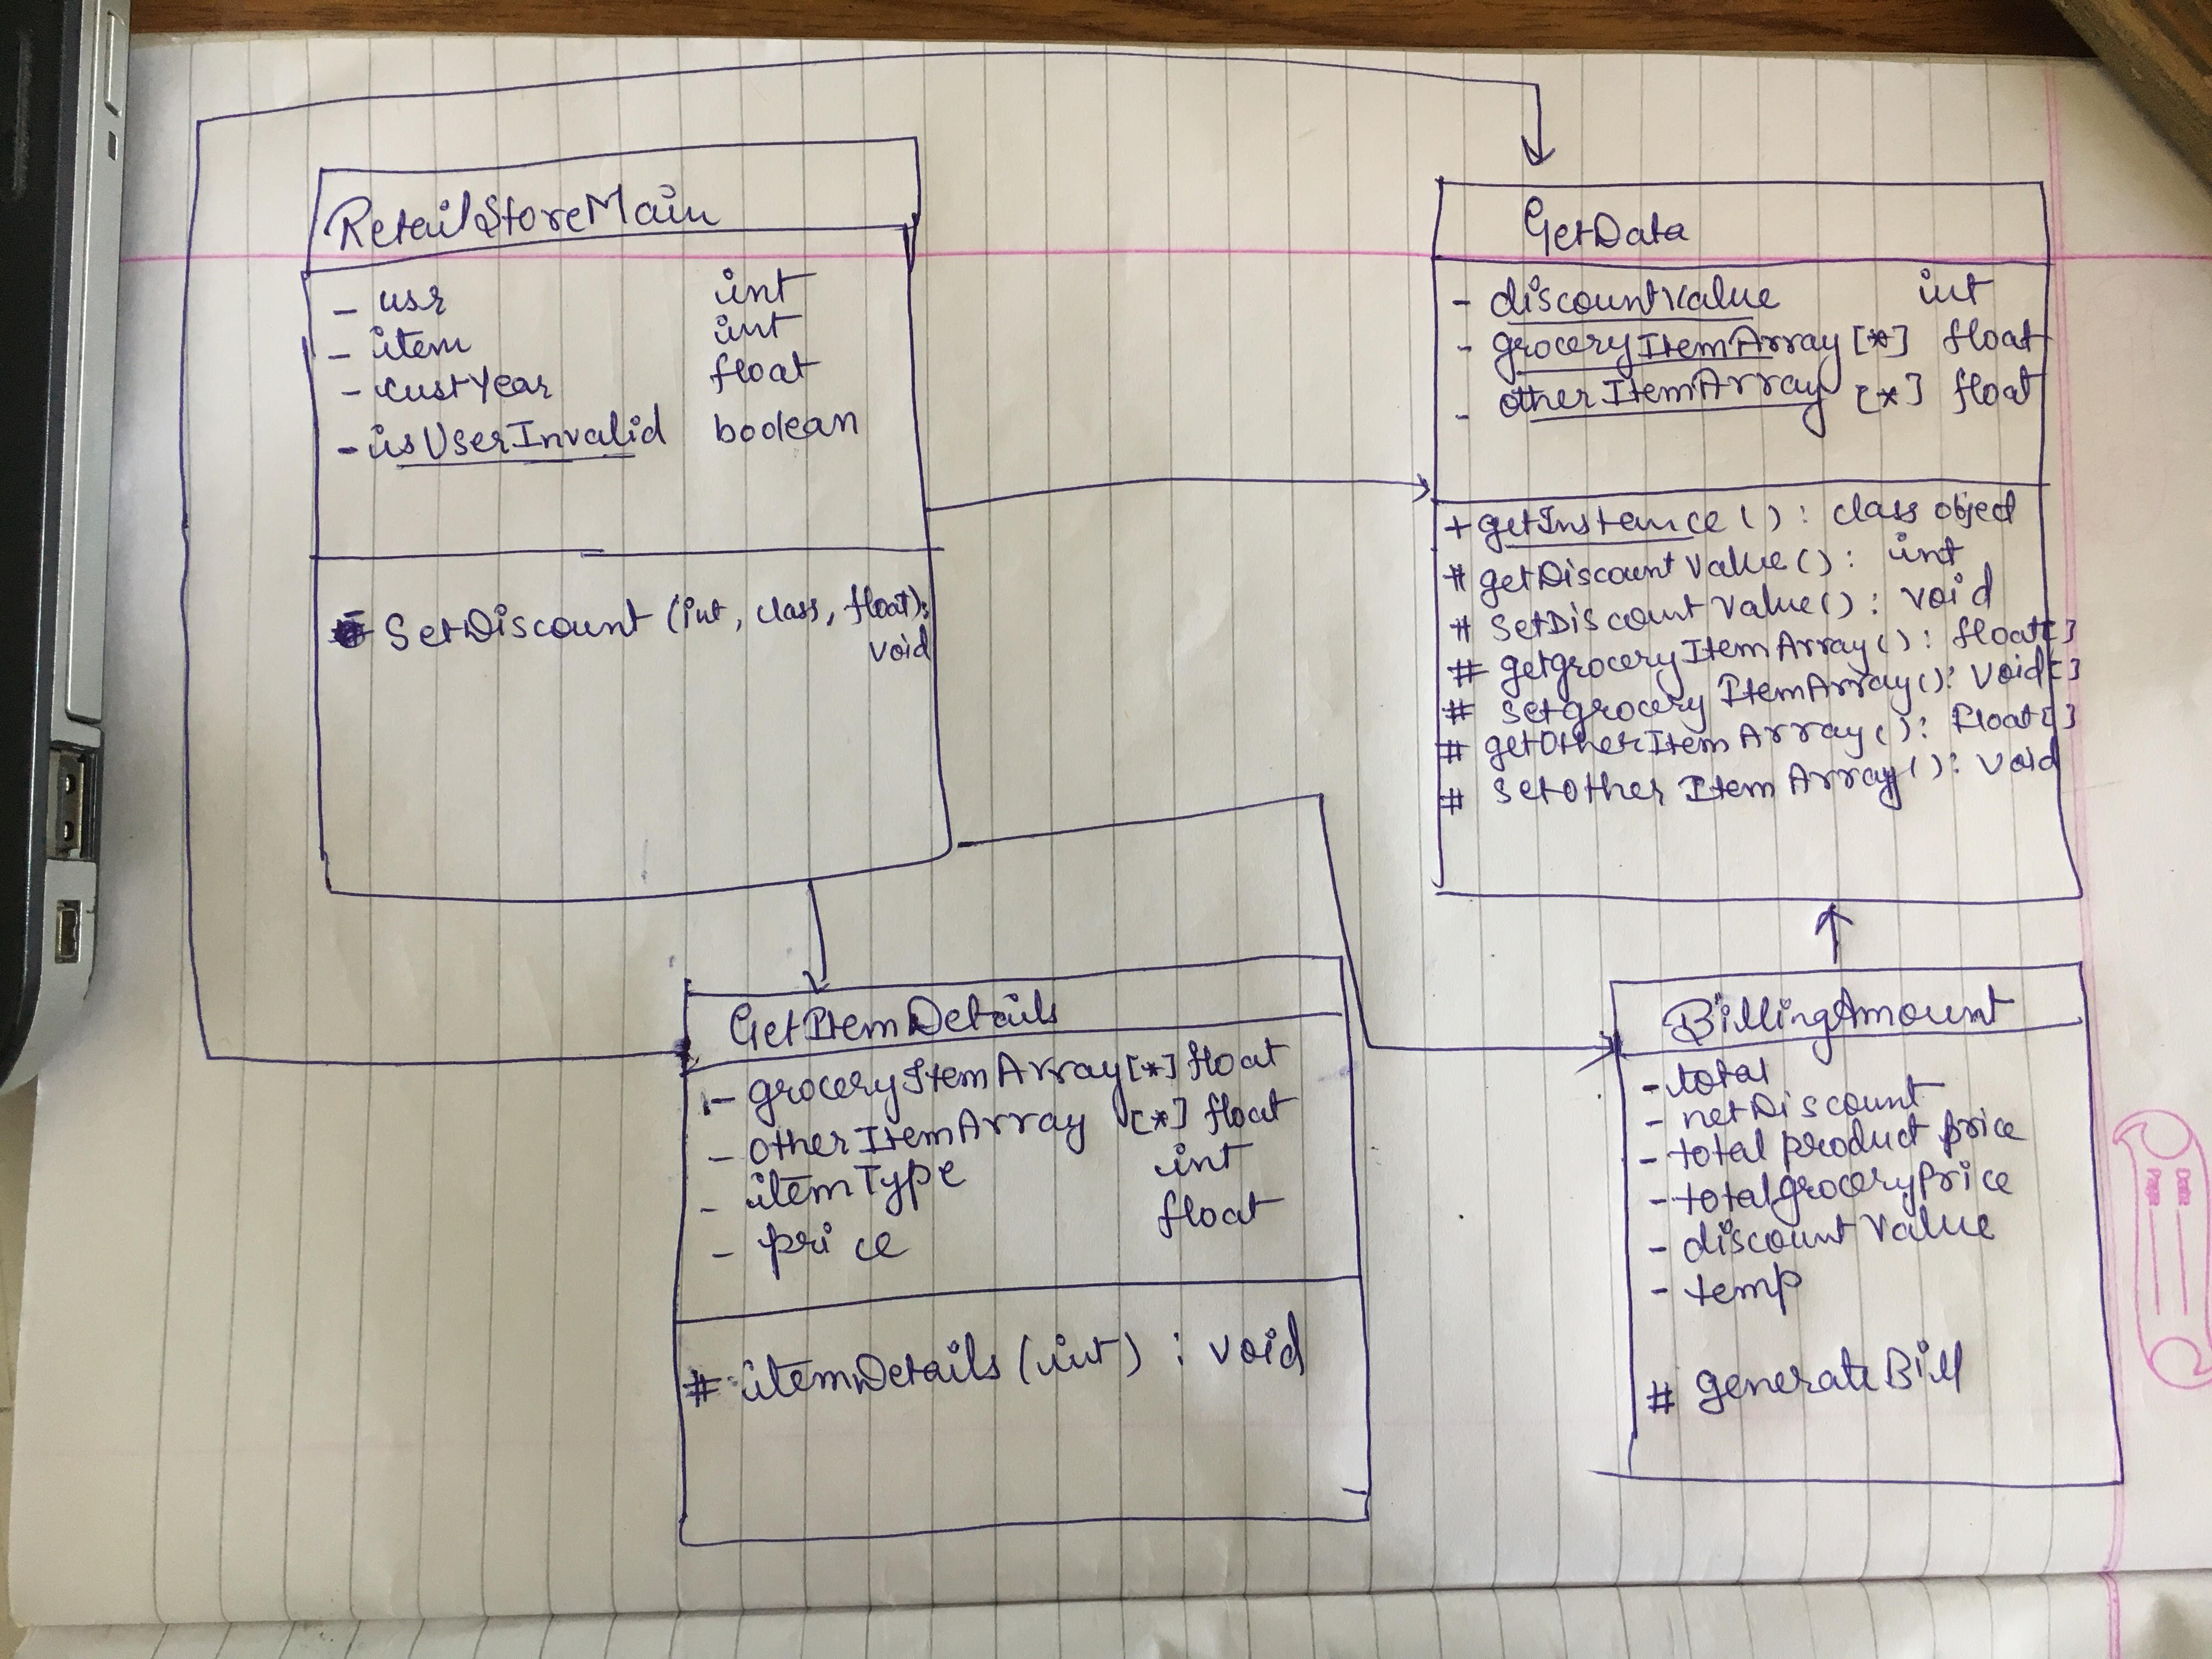 RetailStoreMain
- usr int
- item int
- custYear float
- isUserInvalid boolean
SetDiscount (int, class, float):
void
GetData
- discountValue int
- groceryItemArray [*] float
- otherItemArray [*] float
+ getInstance () : class object
# getDiscountValue() : int
# SetDiscountValue() : void
# getgroceryItemArray() : float[]
# setgroceryItemArray() : void[]
# getOtherItemArray() : float[]
# setOtherItemArray() : void
GetItemDetails
- groceryItemArray [*] float
- otherItemArray [*] float
- itemType int
- price float
# itemDetails (int) : void
BillingAmount
- total
- netDiscount
- total product price
- totalgroceryPrice
- discountValue
- temp
# generateBill
Date
Page